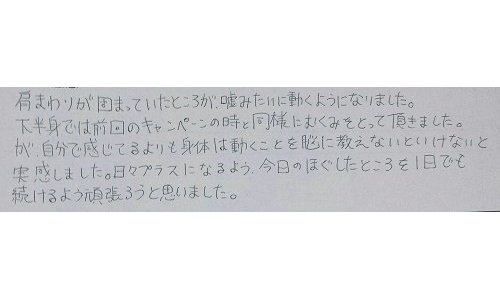 肩まわりが固まっていたところが、嘘みたいに動くようになりました。
下半身では前回のキャンペーンの時と同様にむくみをとって頂きました。
が、自分で感じてるよりも身体は動くことを脳に教えないといけないと
実感しました。日々プラスになるよう、今日のほぐしたところを1日でも
続けるよう頑張ろうと思いました。